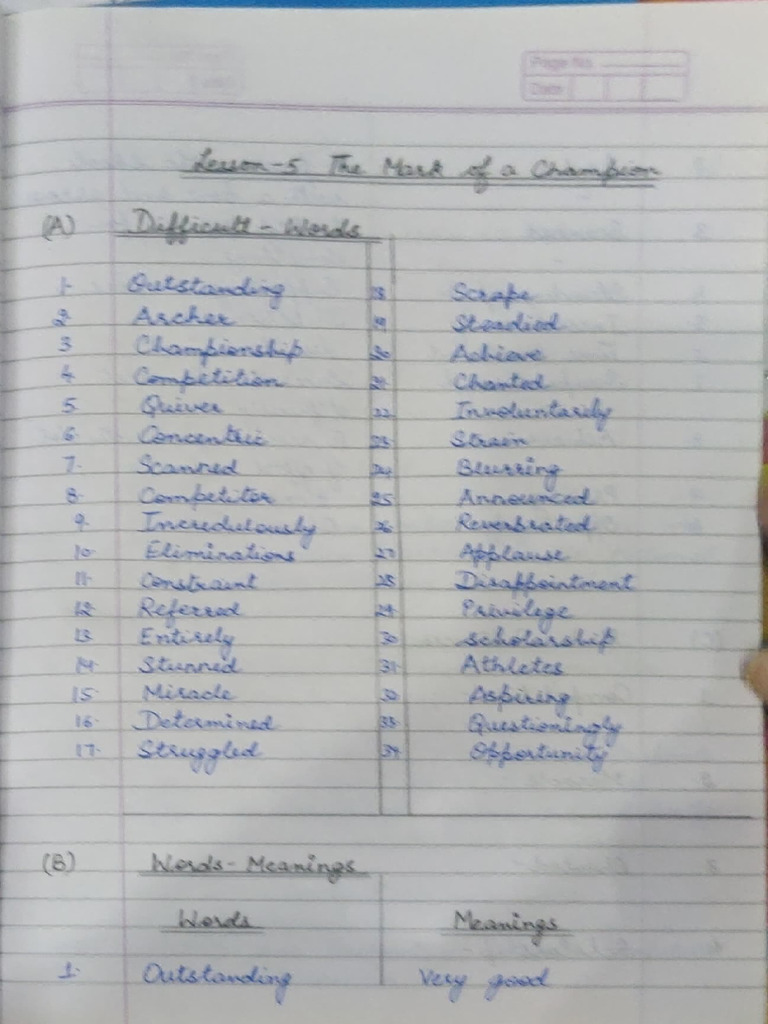 Page No.
Date
Lesson-5 The Mark of a Champion
(A) Difficult - Words
1. Outstanding 18 Scrape
2 Archer 19 Steadied
3 Championship 20 Achieve
4. Competition 21 Chanted
5. Quiver 22 Involuntarily
6. Concentric 23 Strain
7. Scanned 24 Blurring
8. Competitor 25 Announced
9. Incredulously 26 Reverbrated
10. Eliminations 27 Applause
11. Constraint 28 Disappointment
12. Referred 29 Privilege
13. Entirely 30 scholarship
14. Stunned 31 Athletes
15. Miracle 32 Aspiring
16. Determined 33 Questioningly
17. Struggled 34 Opportunity
(B) Words - Meanings
Words Meanings
1. Outstanding Very good